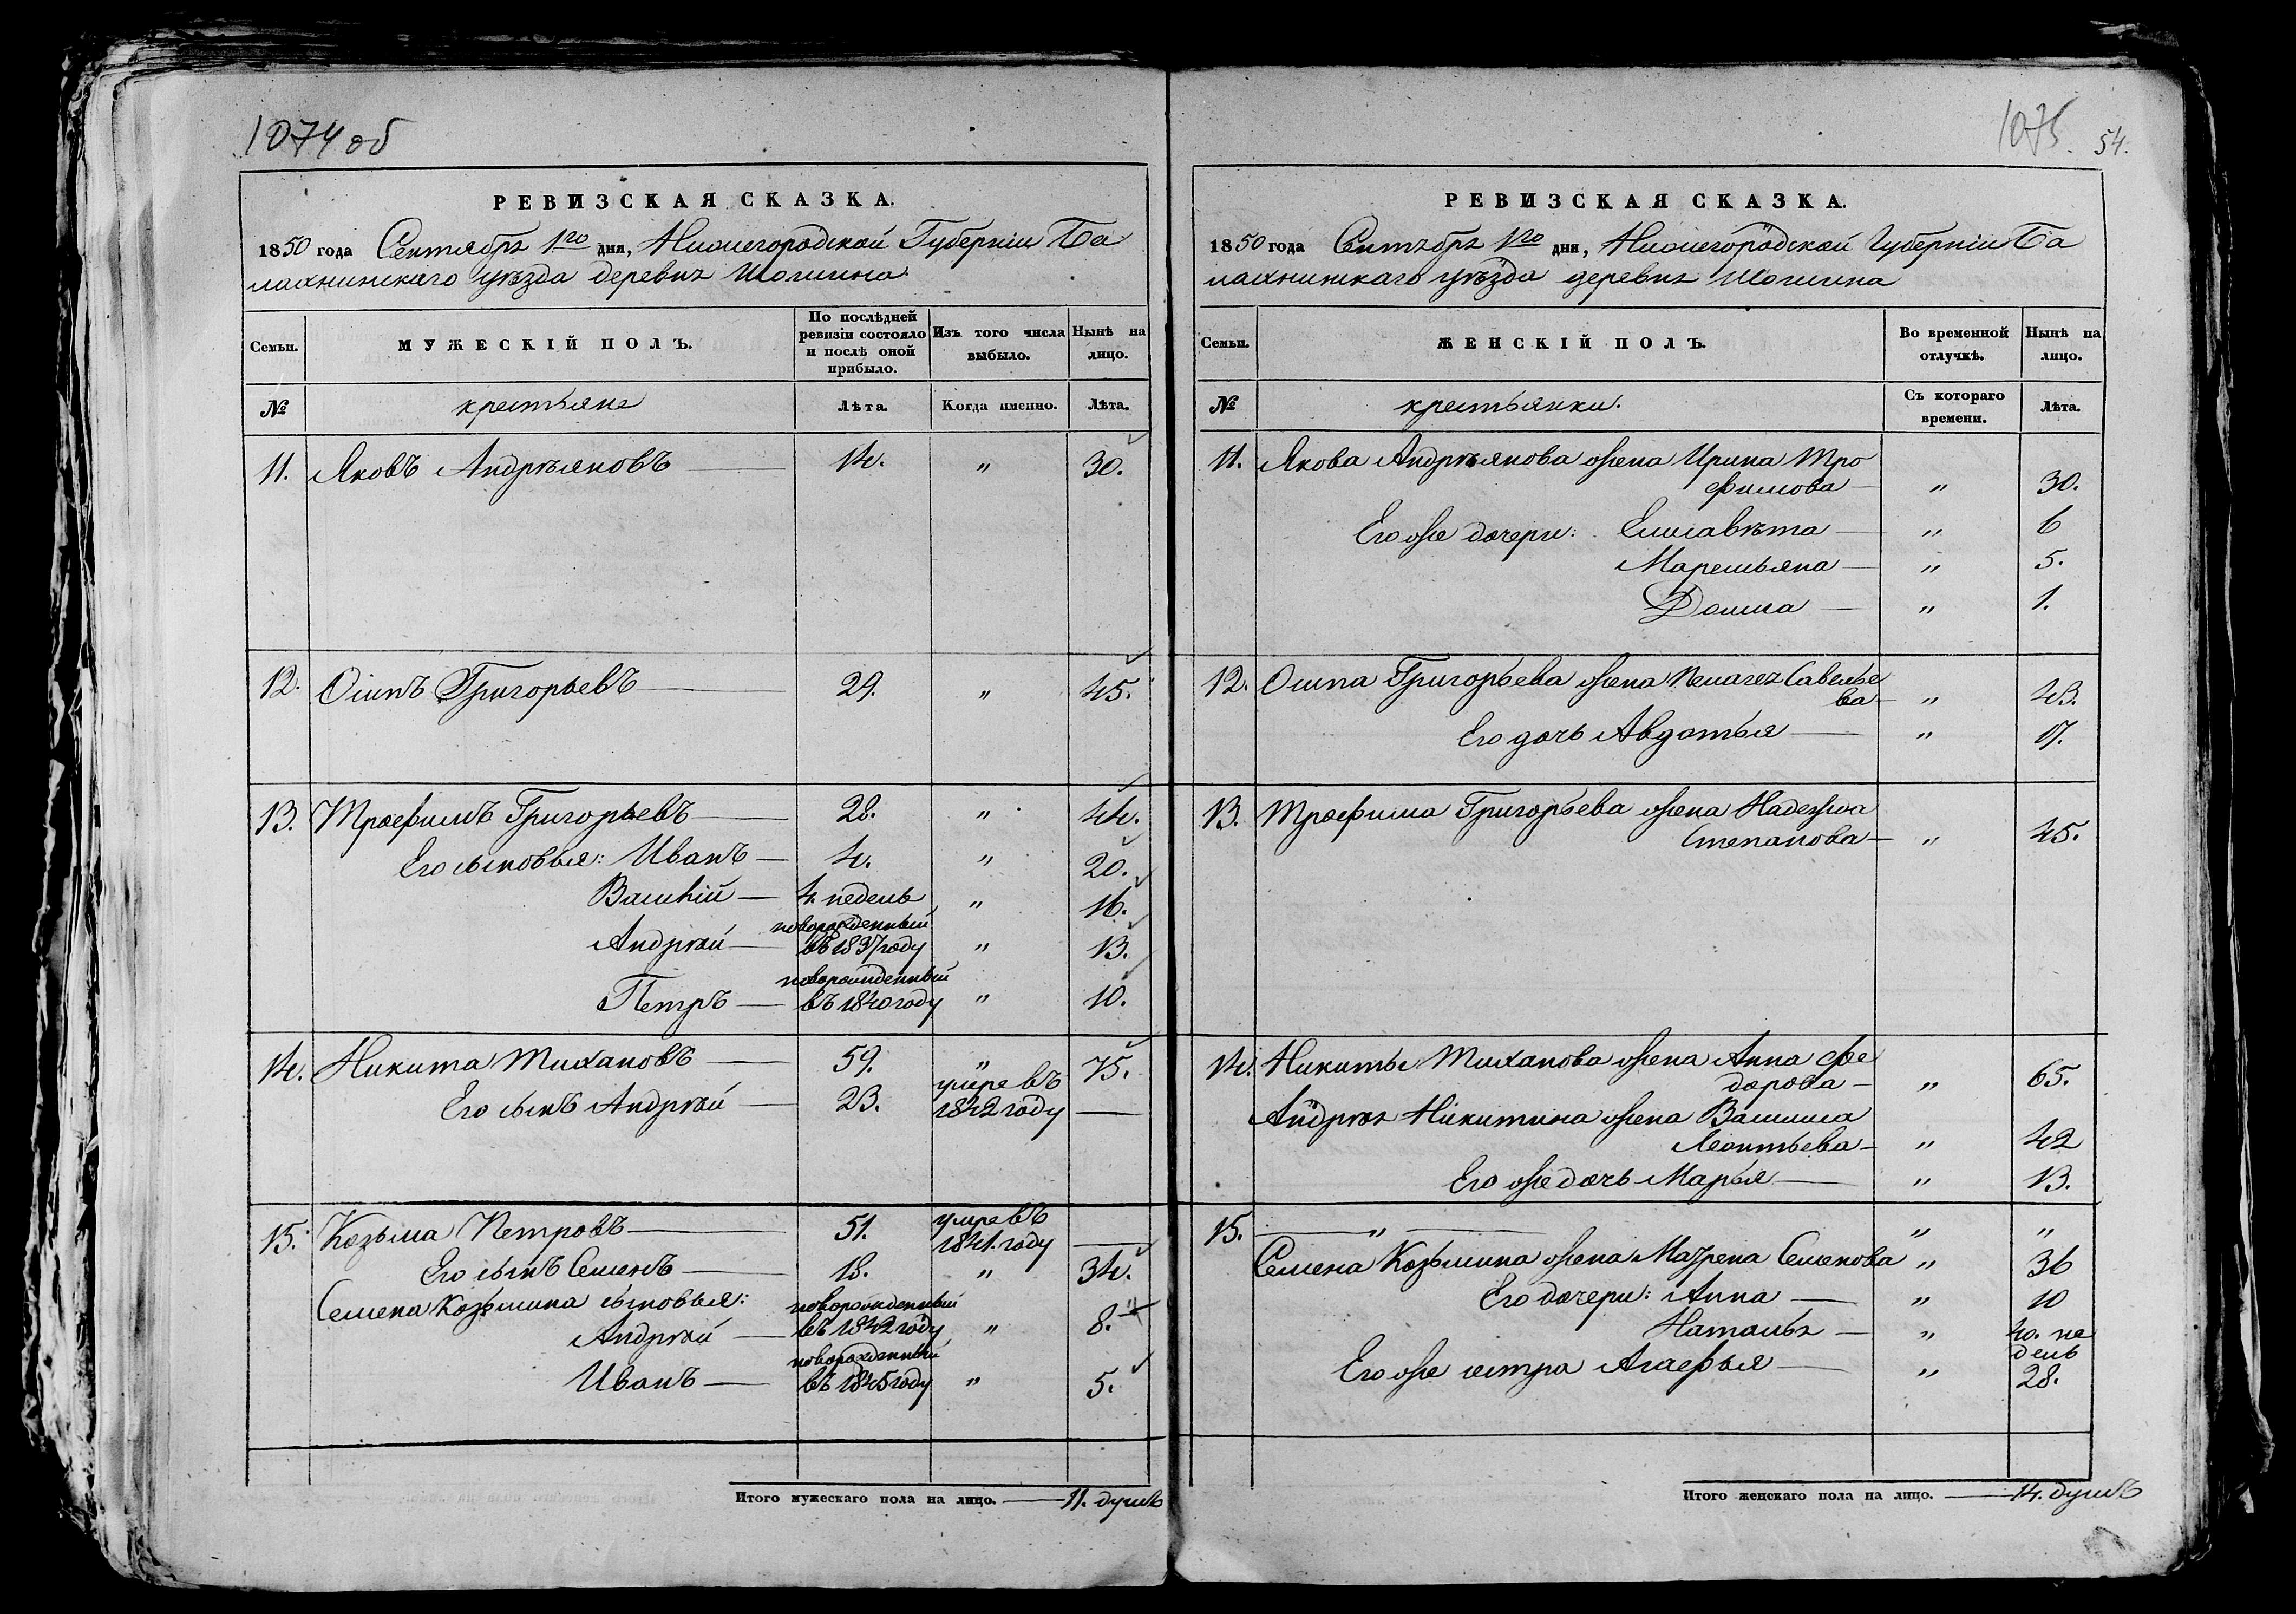 1074 об
РЕВИЗСКАЯ СКАЗКА.
1850 года Сентября 1го дня, Нижегородской Губерніи Ба
лахнинскаго уѣзда деревнѣ
Семьи.
МУЖЕСКІЙ ПОЛЪ.
По послѣдней ревизіи состояло и послѣ оной прибыло.
Изъ того числа выбыло.
Нынѣ на лицо.
№ крестьяне Лѣта. Когда именно. Лѣта.
11. Яковъ Андрѣяновъ — 14. " 30.
12. Осипъ Григорьевъ — 29. " 45.
13. Трофимъ Григорьевъ — 28. " 44.
Его сыновья: Иванъ — 4. " 20.
Василій — 4. недель " 16.
Андрѣй — новорожденный въ 1837 году " 13.
Петръ — новорожденный въ 1840 году " 10.
14. Никита Тихановъ — 59. " 75.
Его сынъ Андрѣй — 23. умре въ 1842 году —
15. Козьма Петровъ — 51. умре въ 1841. году —
Его сынъ Семенъ — 18. " 34.
Семена Козьмина сыновья:
Андрѣй — новорожденный въ 1842 году " 8.
Иванъ — новорожденный въ 1845 году " 5.
Итого мужескаго пола на лицо. — 11. душъ
1075. 54.
РЕВИЗСКАЯ СКАЗКА.
1850 года Сентября 1го дня, Нижегородской Губерніи Ба
лахнинскаго уѣзда деревнѣ
Семьи.
ЖЕНСКІЙ ПОЛЪ.
Во временной отлучкѣ.
Нынѣ на лицо.
№ крестьянки. Съ котораго времени. Лѣта.
11. Якова Андрѣянова жена Ирина Тро
фимова — " 30.
Его же дочери: Елисавѣта — " 6
Маремьяна — " 5.
Домна — " 1.
12. Осипа Григорьева жена Пелагея Савелье
ва — " 43.
Его дочь Авдотья — " 17.
13. Трофима Григорьева жена Надежда
Степанова — " 45.
14. Никиты Тиханова жена Анна Фе
дорова — " 65.
Андрѣя Никитина жена Василиса
Леонтьева — " 42
Его же дочь Марья — " 13.
15. — " — " "
Семена Козьмина жена Матрена Семенова " 36
Его дочери: Анна — " 10
Наталья — " 40. не
дель
Его же сестра Агафья — " 28.
Итого женскаго пола на лицо. — 14. душъ